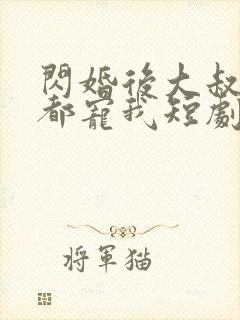 閃婚後大叔
都寵我短劇
將軍猫